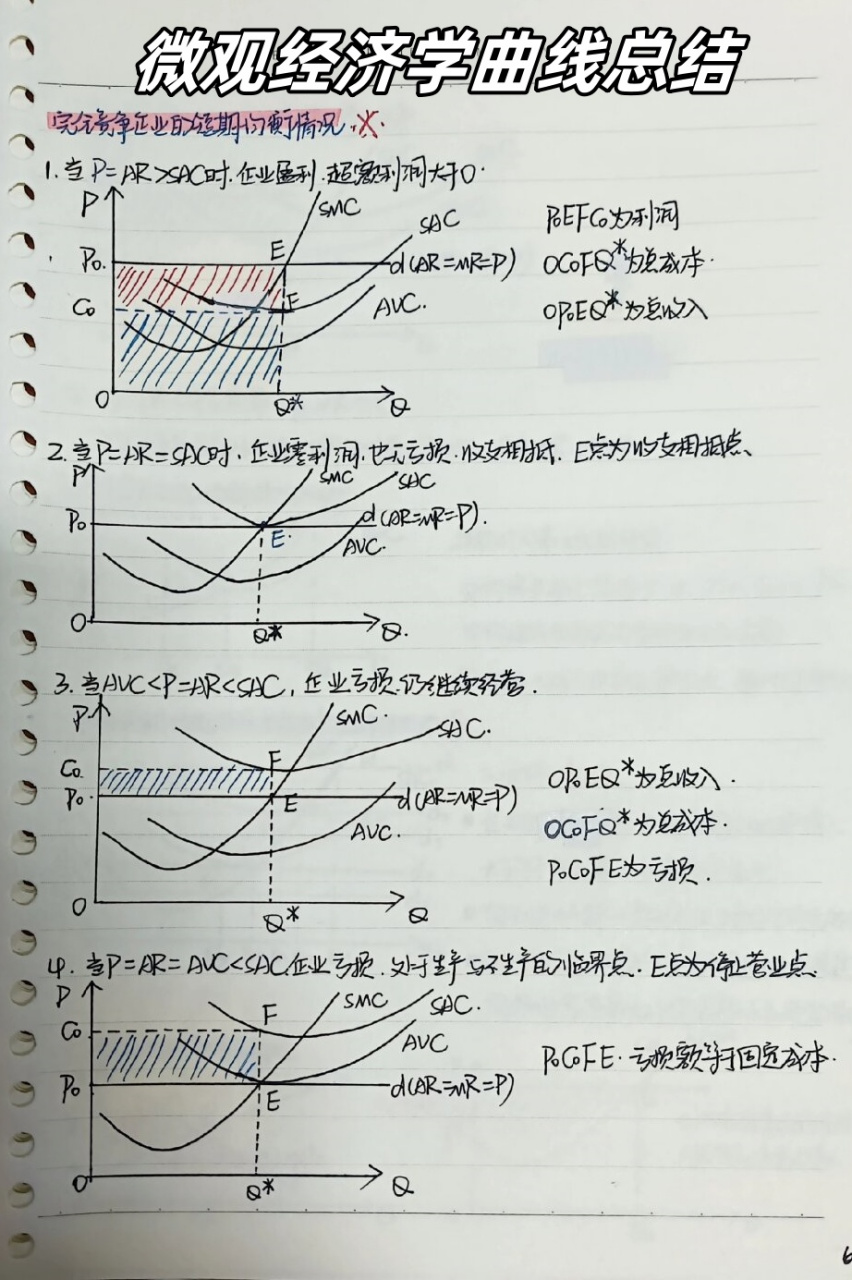 微观经济学曲线总结
完全竞争企业的短期均衡情况.※.
1.当P=AR>SAC时.企业盈利.超额利润大于0.
P
SMC
SAC
E
P₀EFC₀为利润
P₀
d(AR=MR=P)
OC₀FQ*为总成本.
C₀
F
AVC.
OP₀EQ*为总收入
O
Q*
Q
2.当P=AR=SAC时.企业零利润.也无亏损.收支相抵.E点为收支相抵点、
P
SMC
SAC
P₀
d(AR=MR=P).
E.
AVC.
O
Q*
Q.
3.当AVC<P=AR<SAC,企业亏损.仍继续经营.
P
SMC.
SAC.
C₀
F
OP₀EQ*为总收入.
P₀.
E
d(AR=MR=P)
OC₀FQ*为总成本.
AVC.
P₀C₀FE为亏损.
O
Q*
Q
4.当P=AR=AVC<SAC.企业亏损.处于生产与不生产的临界点.E点为停止营业点.
P
SMC
SAC.
C₀
F
AVC
P₀C₀FE.亏损额等于固定成本.
P₀
E
d(AR=MR=P)
O
Q*
Q